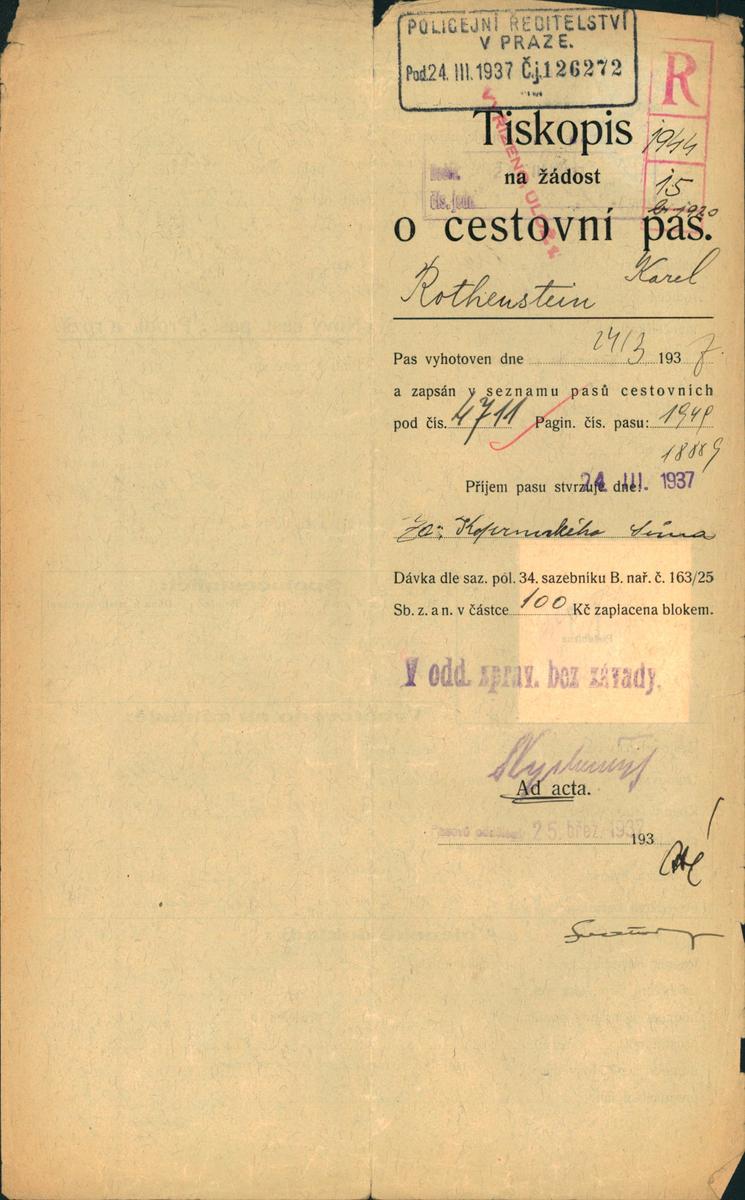 POLICEJNÍ ŘEDITELSTVÍ
V PRAZE.
Pod. 24. III. 1937 Č.j. 126272
R
Tiskopis
1944
na žádost
15
o cestovní pas.
Karel
Rothenstein
Pas vyhotoven dne 24/3 1937
a zapsán v seznamu pasů cestovních
pod čís. 4711 Pagin. čís. pasu:
Příjem pasu stvrzuje dne: 24. III. 1937
Dávka dle saz. pol. 34. sazebníku B. nař. č. 163/25
Sb. z. a n. v částce 100 Kč zaplacena blokem.
V odd. zprav. bez závady.
Ad acta.
25. břez. 1937
193